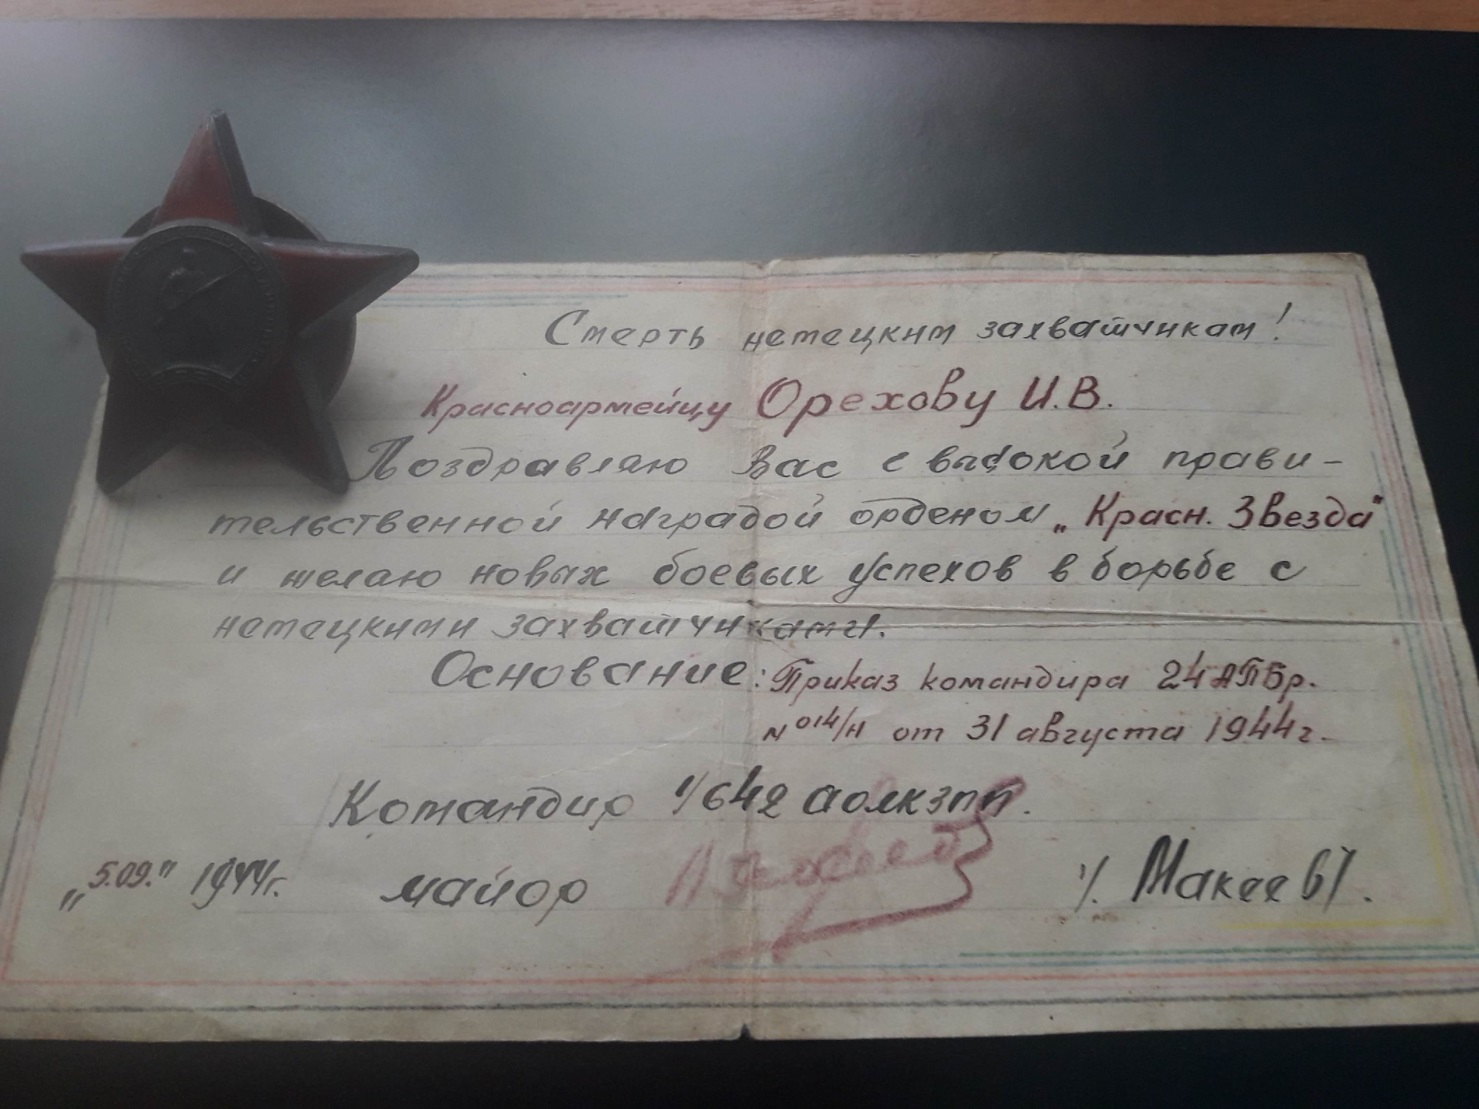 Смерть немецким захватчикам!
Красноармейцу Орехову И.В.
Поздравляю Вас с высокой прави-
тельственной наградой орденом „Красн. Звезда"
и желаю новых боевых успехов в борьбе с
немецкими захватчиками.
Основание: Приказ командира 24 АПБр.
№ 014/н от 31 августа 1944г.
Командир 1/642 аолкзпп.
„5.09." 1944г. майор /. Макеев /.